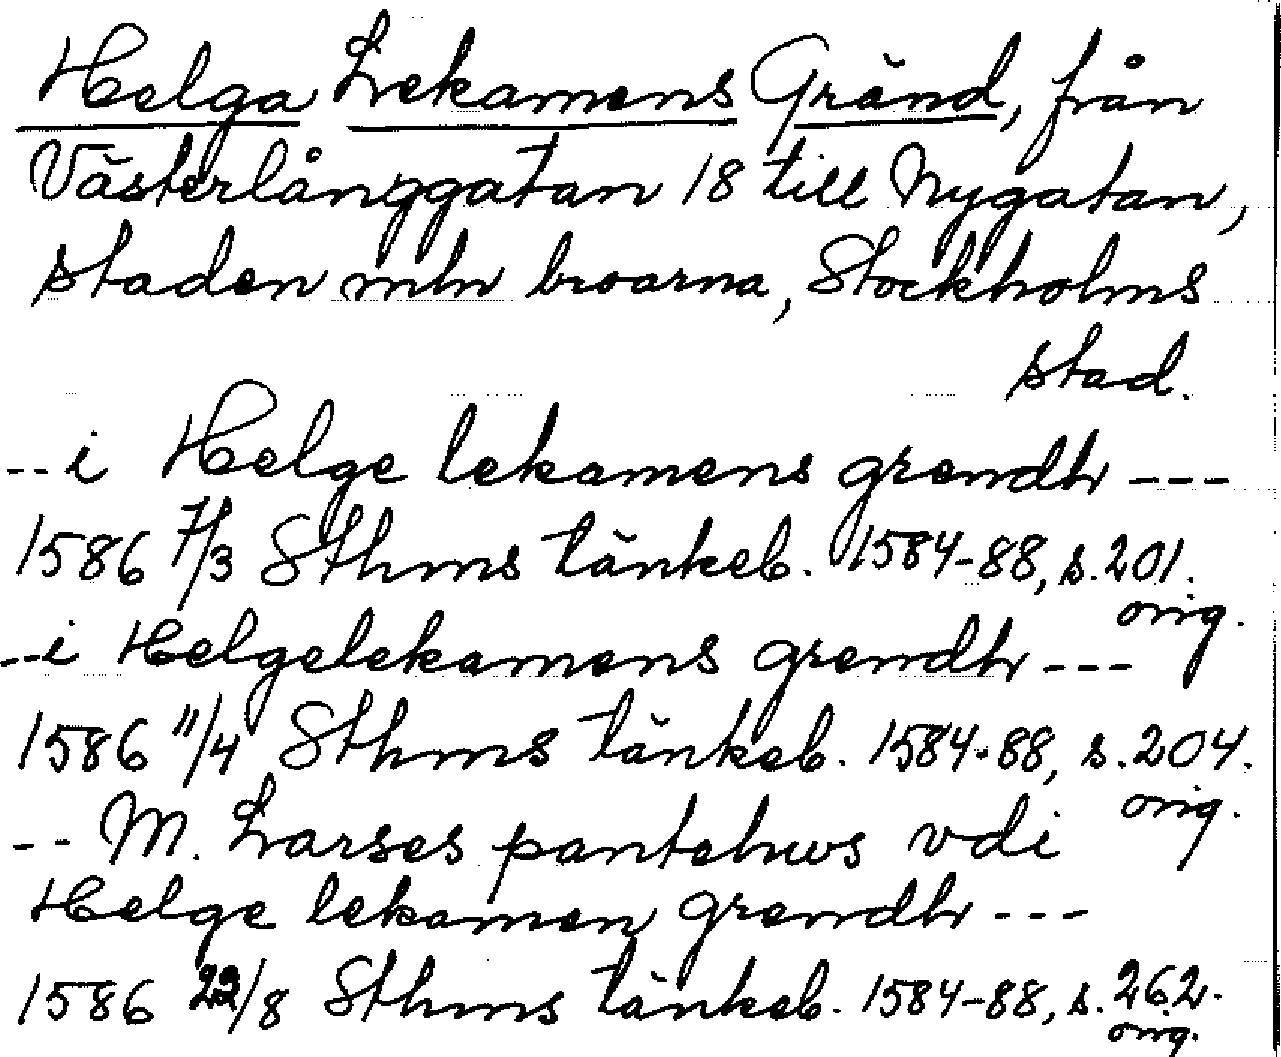 Helga Lekamens Gränd, från
Västerlånggatan 18 till Nygatan,
staden mln broarna, Stockholms
stad.
-- i Helge lekamens grendh ---
1586 7/3 Sthms tänkeb. 1584-88, s. 201.
orig.
-- i Helgelekamens grendh ---
1586 11/4 Sthms tänkeb. 1584-88, s. 204.
orig.
-- M. Larses pantehws vdi
Helge lekamen grendh ---
1586 22/8 Sthms tänkeb. 1584-88, s. 262.
orig.